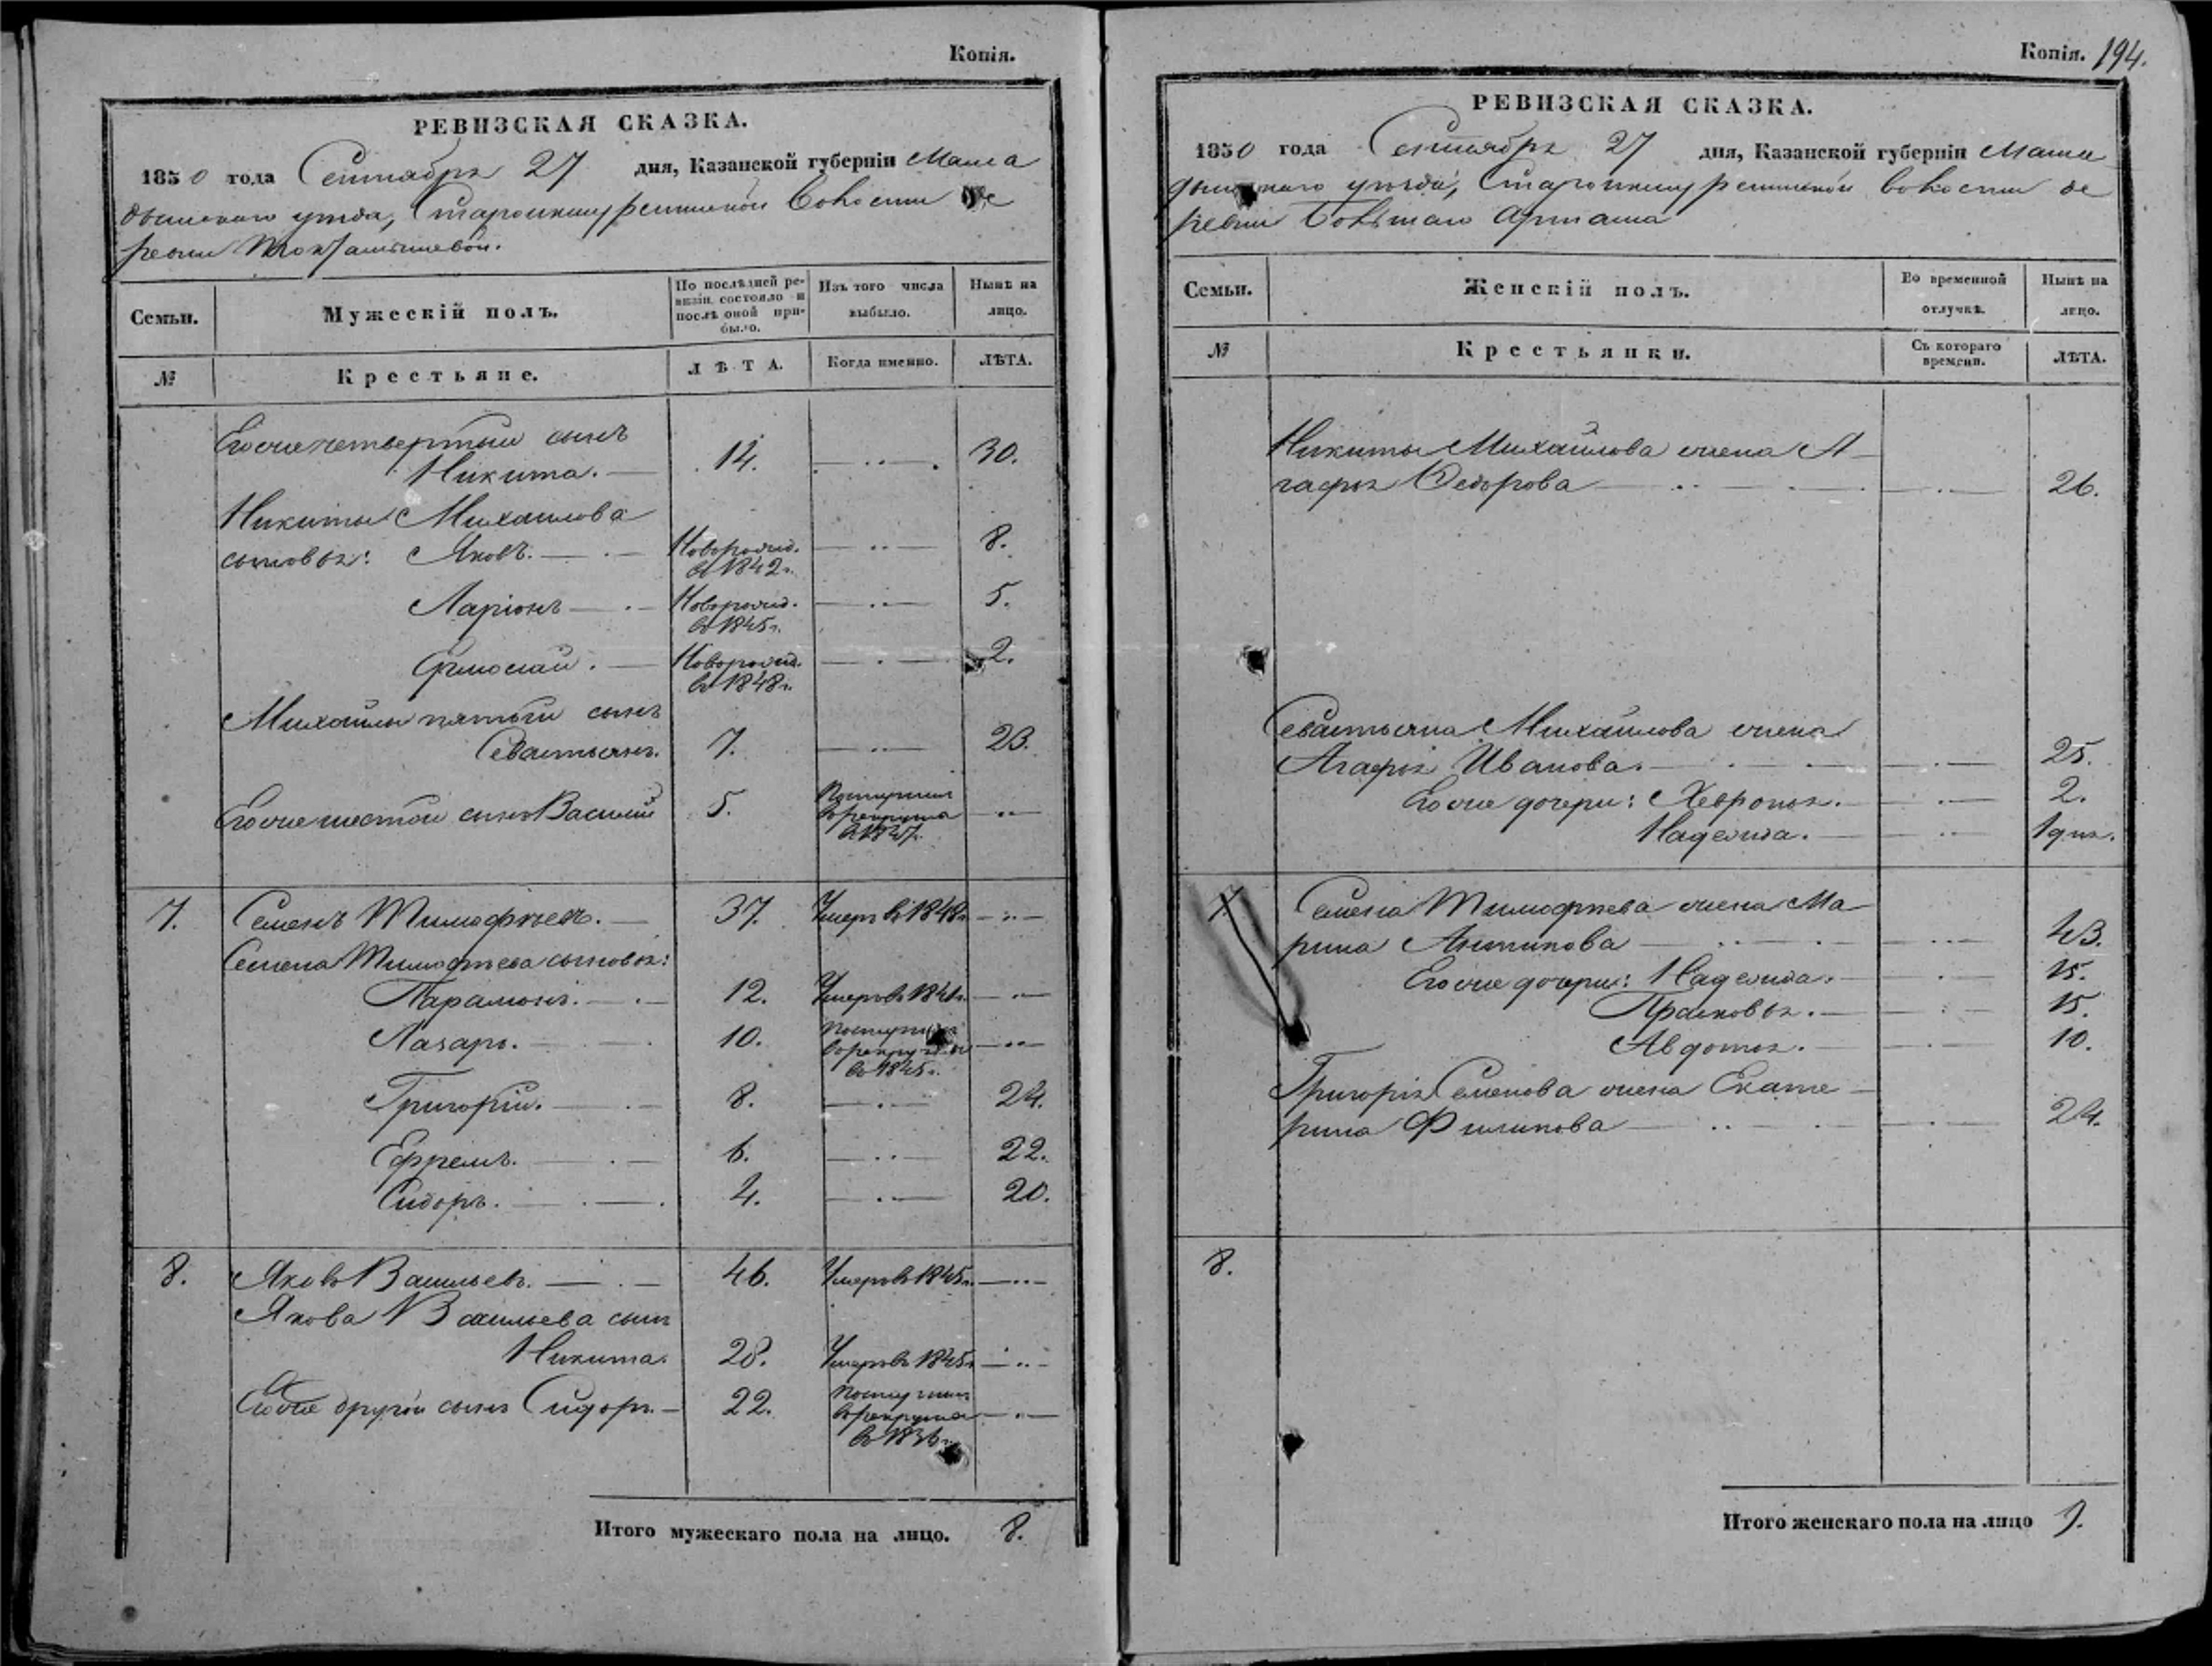 Копія.
РЕВИЗСКАЯ СКАЗКА.
1850 года Сентября 27 дня, Казанской губерніи Мама
дышскаго уѣзда, волости де
ревни
Семьи. Мужескій полъ. По послѣдней ре- Изъ того числа Нынѣ на
визіи состояло и выбыло. лицо.
послѣ оной при-
было.
№ Крестьяне. ЛѢТА. Когда именно. ЛѢТА.
Егоже четвертый сынъ
Никита. 14. 30.
Никиты Михайлова
сыновья: Яковъ. Новорожд. 8.
в 1842 г.
Ларіонъ Новорожд. 5.
в 1845 г.
Новорожд. 2.
в 1848 г.
Михайлы пятый сынъ
Севастьянъ. 7. 23.
Егоже шестой сынъ Василій 5. Поступилъ
в рекрута
в 1847 г.
7. Семенъ Тимофѣевъ. 37. Умеръ в 1848 г.
Семена Тимофѣева сыновья:
Парамонъ. 12. Умеръ в 1841 г.
Лазарь. 10. Поступилъ
в рекрута
в 1845 г.
Григорій. 8. 24.
Ефремъ. 6. 22.
Сидоръ. 4. 20.
8. Яковъ Васильевъ. 46. Умеръ в 1845 г.
Якова Васильева сынъ
Никита. 28. Умеръ в 1845 г.
Егоже другой сынъ Сидоръ. 22. Поступилъ
в рекрута
в 1836 г.
Итого мужескаго пола на лицо. 8.
Копія. 194.
РЕВИЗСКАЯ СКАЗКА.
1850 года Сентября 27 дня, Казанской губерніи Мама
дышскаго уѣзда, волости де
ревни Большаго Арташа
Семьи. Женскій полъ. Во временной Нынѣ на
отлучкѣ. лицо.
№ Крестьянки. Съ котораго ЛѢТА.
времени.
Никиты Михайлова жена А
гафья Федорова 26.
Севастьяна Михайлова жена
Агафья Иванова. 25.
Егоже дочери: Хевронья. 2.
Надежда. 1 дня.
7. Семена Тимофѣева жена Ма
рина Антипова 43.
Егоже дочери: Надежда. 15.
Прасковья. 15.
Авдотья. 10.
Григорья Семенова жена Екате
рина Филипова 24.
8.
Итого женскаго пола на лицо 9.